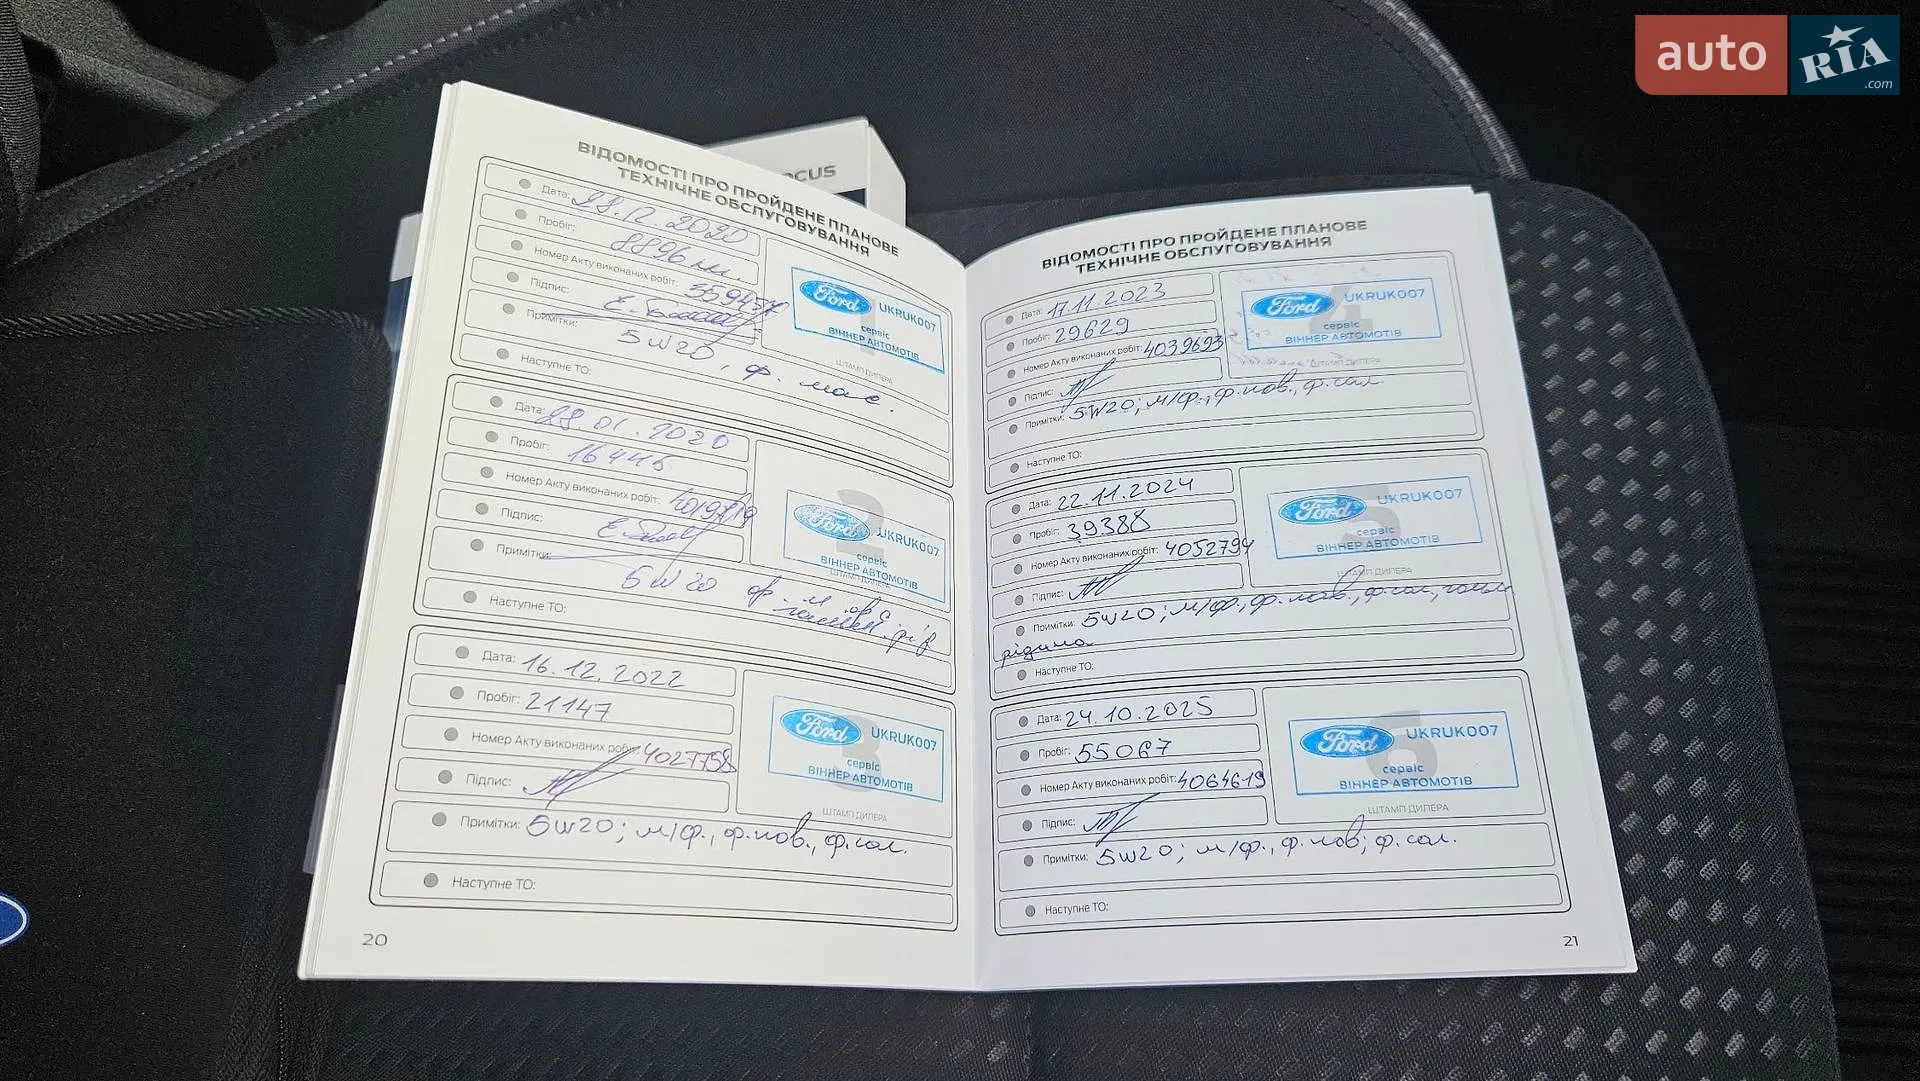 auto RIA.com
OCUS
ВІДОМОСТІ ПРО ПРОЙДЕНЕ ПЛАНОВЕ
ТЕХНІЧНЕ ОБСЛУГОВУВАННЯ
Дата: 28.12.2020
Пробіг: 8896 км.
Номер Акту виконаних робіт: 359457
Підпис:
Примітки: 5w20, ф. мас.
Наступне ТО:
1
Ford UKRUK007
сервіс
ВІННЕР АВТОМОТІВ
ШТАМП ДИЛЕРА
Дата: 28.01.2020
Пробіг: 16445
Номер Акту виконаних робіт:
Підпис:
Примітки: 5w20 ф.
Наступне ТО:
2
Ford UKRUK007
сервіс
ВІННЕР АВТОМОТІВ
ШТАМП ДИЛЕРА
Дата: 16.12.2022
Пробіг: 21147
Номер Акту виконаних робіт: 4027758
Підпис:
Примітки: 5w20; м/ф., ф.пов., ф.сал.
Наступне ТО:
3
Ford UKRUK007
сервіс
ВІННЕР АВТОМОТІВ
ШТАМП ДИЛЕРА
20
ВІДОМОСТІ ПРО ПРОЙДЕНЕ ПЛАНОВЕ
ТЕХНІЧНЕ ОБСЛУГОВУВАННЯ
Дата: 17.11.2023
Пробіг: 29629
Номер Акту виконаних робіт: 4039693
Підпис:
Примітки: 5W20; м/ф., ф.пов., ф.сал.
Наступне ТО:
4
Ford UKRUK007
сервіс
ВІННЕР АВТОМОТІВ
ШТАМП ДИЛЕРА
Дата: 22.11.2024
Пробіг: 39388
Номер Акту виконаних робіт: 4052794
Підпис:
Примітки: 5w20; м/ф., ф.пов., ф.сал., гальм
рідина
Наступне ТО:
5
Ford UKRUK007
сервіс
ВІННЕР АВТОМОТІВ
ШТАМП ДИЛЕРА
Дата: 24.10.2025
Пробіг: 55067
Номер Акту виконаних робіт: 4064619
Підпис:
Примітки: 5w20; м/ф., ф.пов; ф.сал.
Наступне ТО:
6
Ford UKRUK007
сервіс
ВІННЕР АВТОМОТІВ
ШТАМП ДИЛЕРА
21